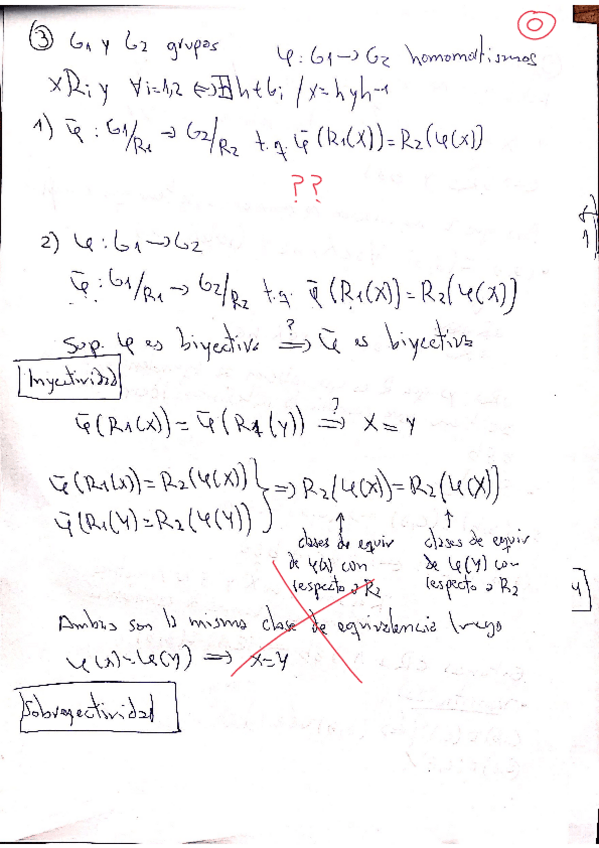 0
③ G1 y G2 grupos φ: G1 → G2 homomorfismos
x Ri y ∀i=1,2 ⇔ ∃h∈Gi / x=hyh-1
1) φ̄ : G1/R1 → G2/R2 t.q. φ̄(R1(x))=R2(φ(x))
??
2) φ: G1 → G2
φ̄ : G1/R1 → G2/R2 t.q. φ̄(R1(x))=R2(φ(x))
Sup. φ es biyectiva ⇒? φ̄ es biyectiva
Inyectividad
φ̄(R1(x)) = φ̄(R1(y)) ⇒? x=y
φ̄(R1(x))=R2(φ(x))
φ̄(R1(y)=R2(φ(y)) } ⇒ R2(φ(x))=R2(φ(x))
↑ ↑
clases de equiv clases de equiv
de φ(x) con de φ(y) con
respecto a R2 respecto a R2
Ambas son la misma clase de equivalencia luego
φ(x)=φ(y) ⇒ x=y
Sobreyectividad